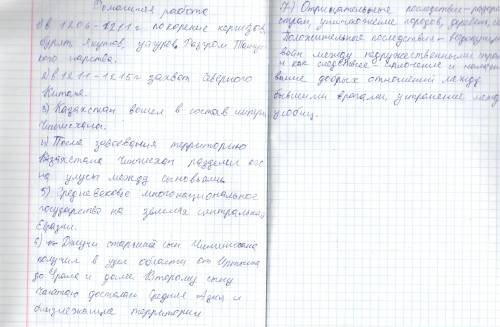 Домашняя работа
1) В 1206-1211 г покорение киргизов,
бурят якутов, уйгуров, разгром Тангут-
ского царства.
2) В 1211-1215 г захват Северного
Китая.
3) Казахстан вошел в состав империи
Чингисхана.
4) После завоевания территорию
Казахстана Чингисхан разделил его
на улусы между сыновьями.
5) Средневековое многонациональное
государство на землях центральной
Евразии.
6) Джучи старший сын Чингисхана
получил в удел области от Иртыша
до Урала и далее. Второму сыну
Чагатаю досталась Средняя Азия и
близлежащие территории
7) Отрицательные последствия-
стран, уничтожение народов,
Положительное последствие-
войн между
и как следствие
добрых отношений между
бывшими врагами, устранение между
усобиц.